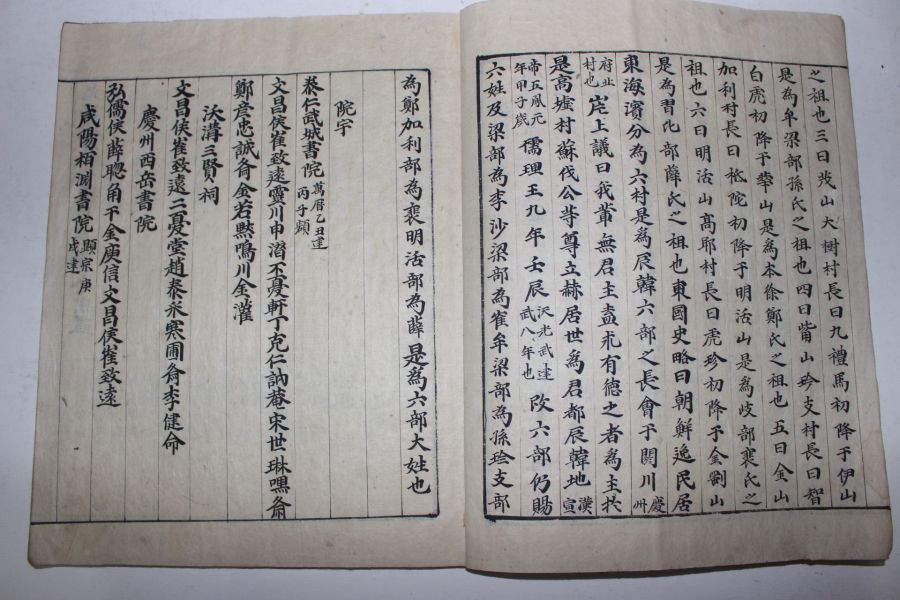 之祖也三曰茂山大樹村長曰九禮馬初降于伊山
是為牟梁部孫氏之祖也四曰觜山珍支村長曰智
白虎初降于華山是為本徐鄭氏之祖也五曰金山
加利村長曰祗陀初降于明活山是為岐部裵氏之
祖也六曰明活山高耶村長曰虎珍初降于金剛山
是為習比部薛氏之祖也東國史略曰朝鮮逸民居
東海濱分為六村是為辰韓六部之長會于閼川慶州
府北村也岸上議曰我輩無君主盍求有德之者為主於
是高墟村蘇伐公等尊立赫居世為君都辰韓地漢宣
帝五鳳元年甲子歲儒理王九年壬辰漢光武建武八年也改六部仍賜
六姓及梁部為李沙梁部為崔牟梁部為孫珍支部
為鄭加利部為裵明活部為薛是為六部大姓也
院宇
泰仁武城書院萬曆乙丑建丙子額
文昌侯崔致遠靈川申潛不憂軒丁克仁訥菴宋世琳嘿齋
鄭彦忠誠齋金若默鳴川金灌
沃溝三賢祠
文昌侯崔致遠二憂堂趙泰采寒圃齋李健命
慶州西岳書院
弘儒侯薛聰角干金庾信文昌侯崔致遠
咸陽栢淵書院顯宗庚戌建